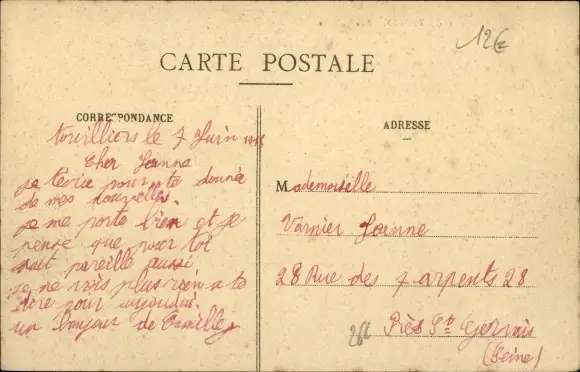 12€
CARTE POSTALE
CORRESPONDANCE
ADRESSE
le 7 Juin
Cher Jeanne
je t'écrie pour te donnée
de mes nouvelles.
je me porte bien et je
pense que pour toi
soit pareille aussi
je ne vois plus rien a te
dire pour aujoudui.
un Bonjour de Camille
Mademoiselle
Varnier Jeanne
28 Rue des 7 arpents 28
Près St Gervais
(Seine)